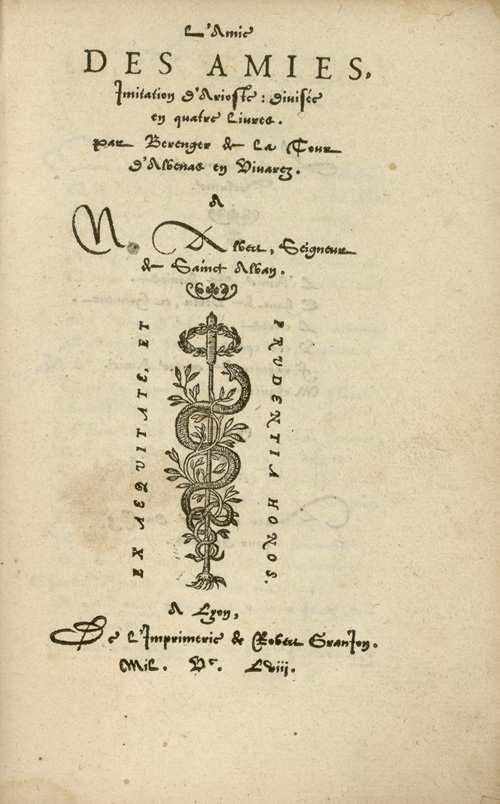 L'Amie
DES AMIES,
Imitation d'Arioste : divisée
en quatre Livres.
par Berenger de la Tour
d'Albenas en Vivarez.
A
N. Albert, Seigneur
de Sainct Alban.
EX AEQVITATE, ET
PRVDENTIA HONOS.
A Lyon,
De l'Imprimerie de Robert GranJon.
Mil. Vc. Lviii.